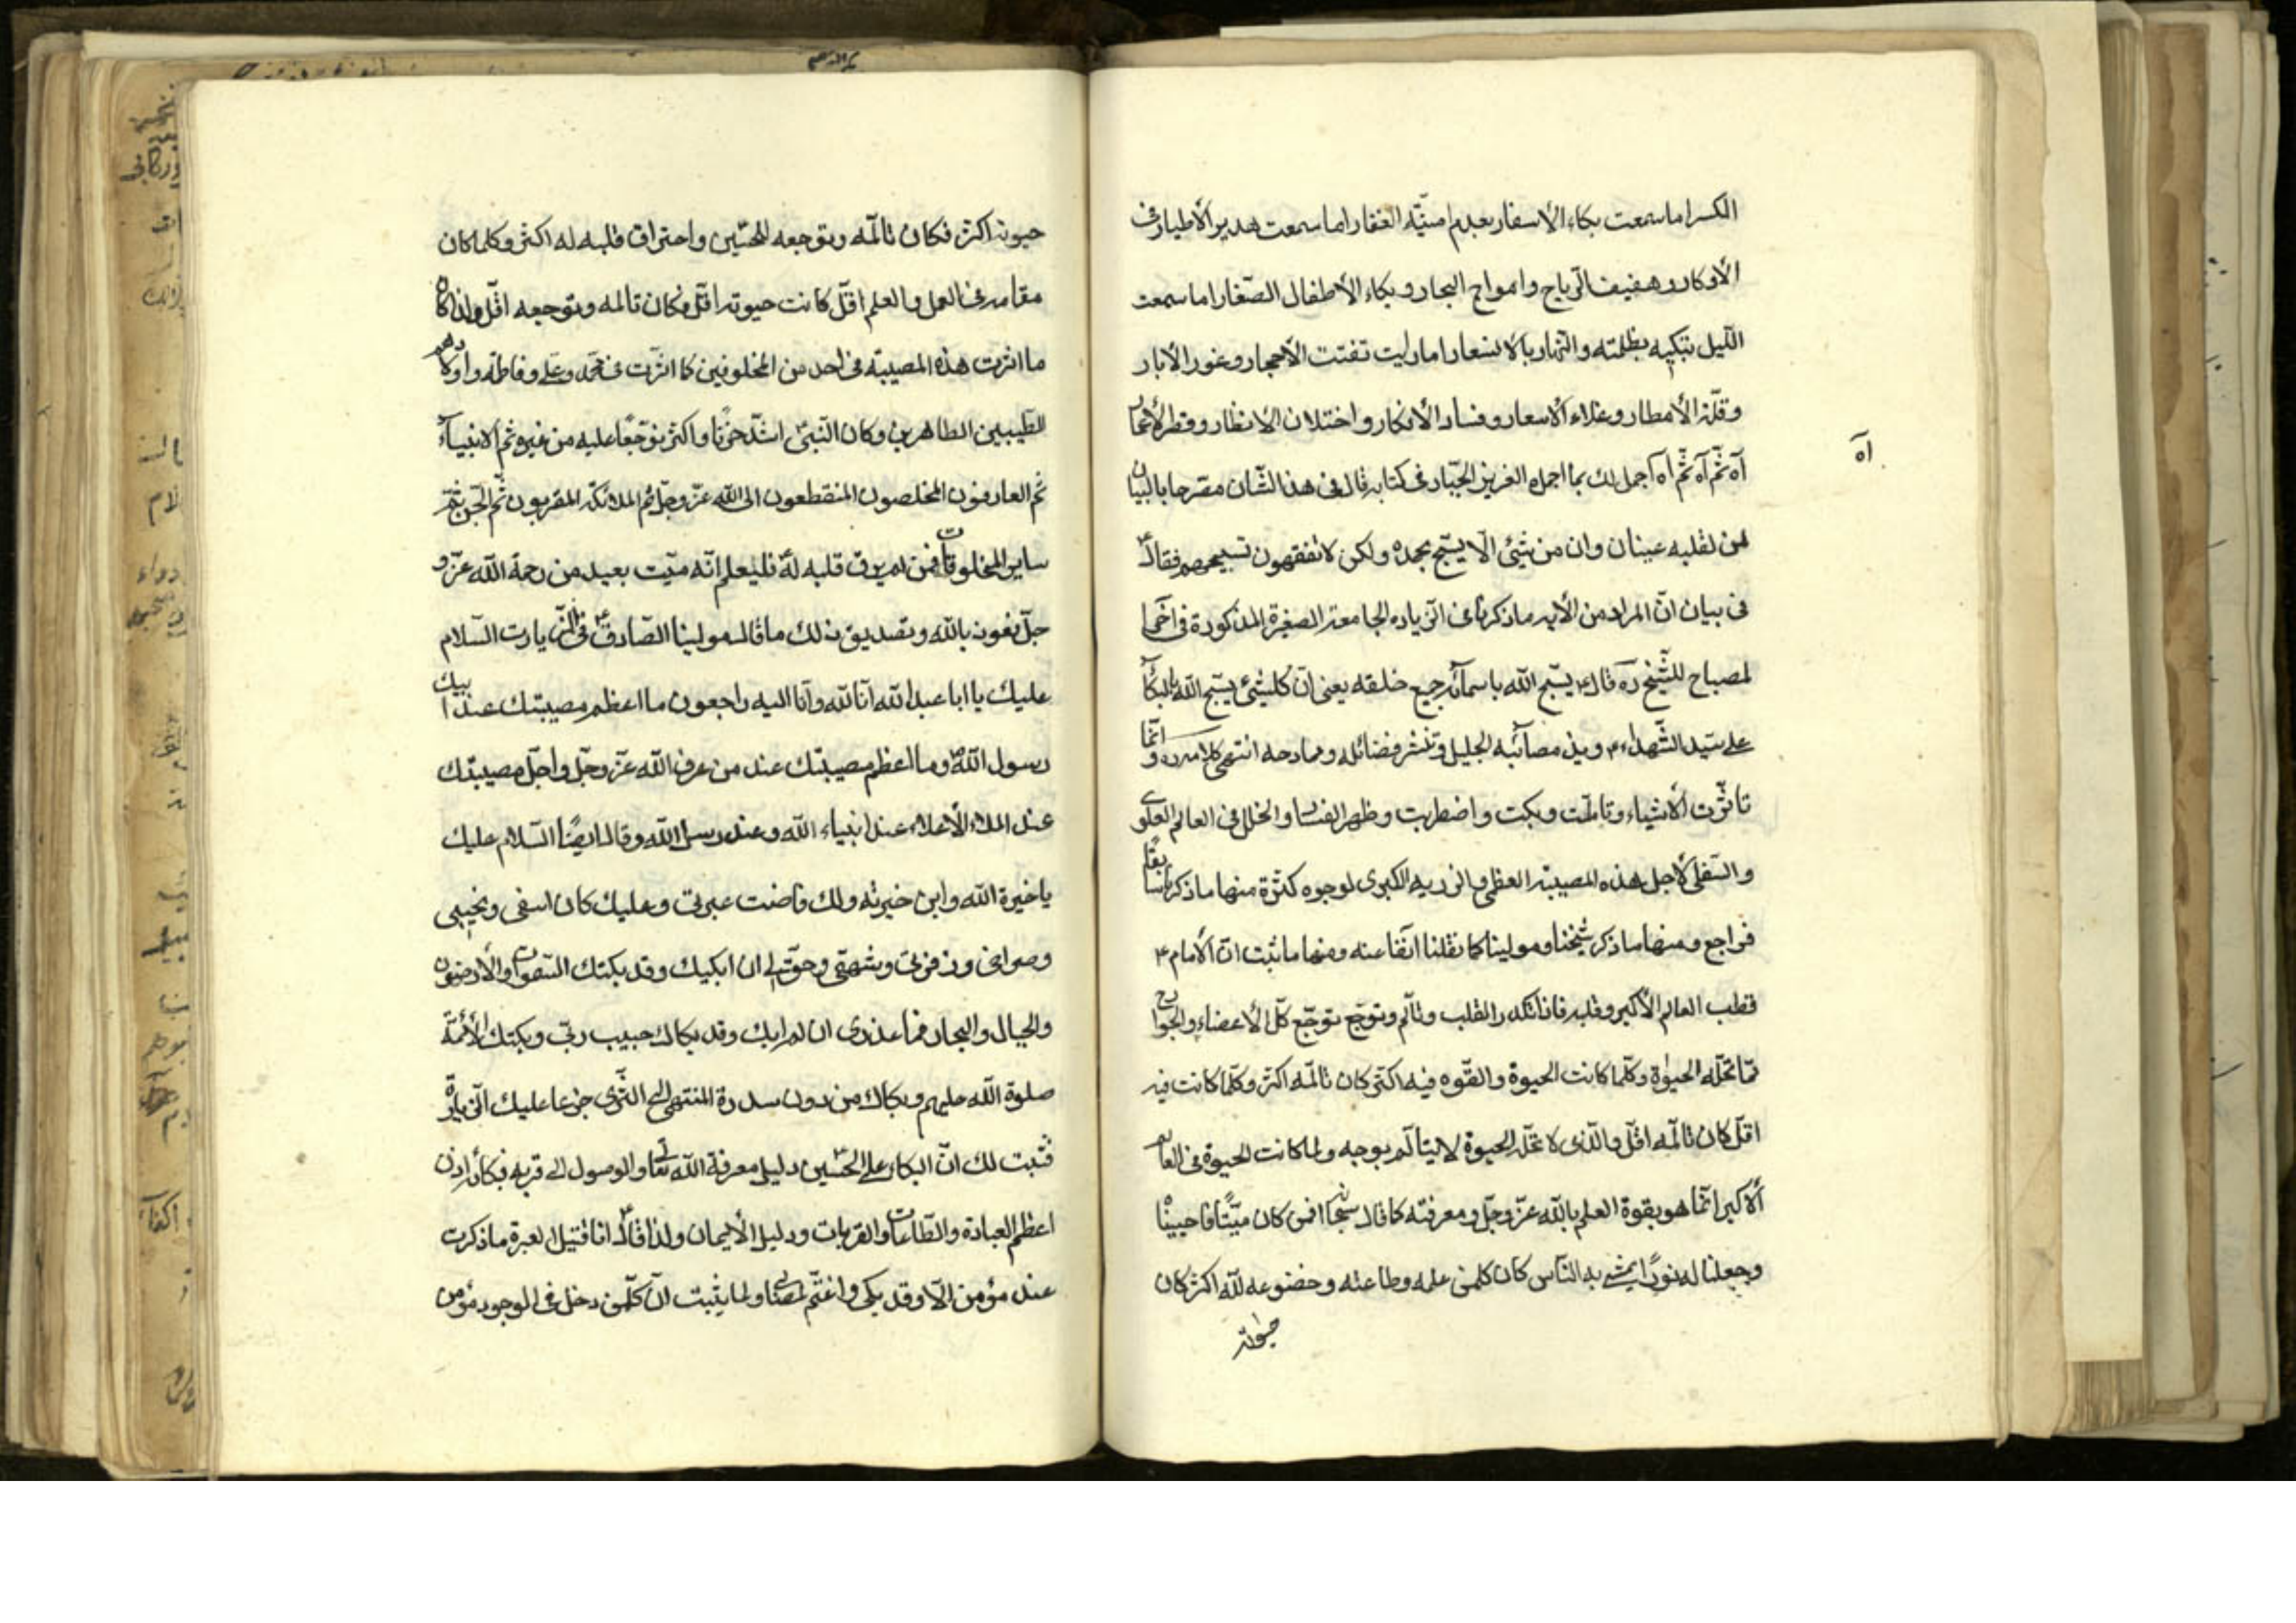 الكسر اما سمعت بكاء الأسفار بعدم امنيّة الغفار اما سمعت هدير الأطيار فى
الأوكار وهفيف الرّياح وامواج البحار وبكاء الأطفال الصّغار اما سمعت
اللّيل تبكيه بظلمته والنّهار بالاسعار اما رايت تفتت الأحجار وغور الأبار
وقلّة الأمطار وغلاء الأسعار وفساد الأفكار واختلاف الانظار وقطر الأعمار
آه ثمّ آه ثمّ آه اجمل لك بما اجمله العزيز الجبّار فى كتابه قال فى هذا الشّان مصرحا بالبيان
آه
لمن لقلبه عينان وان من شئ الّا يسبّح بحمده ولكن لا تفقهون تسبيحهم فقال
فى بيان انّ المراد من الأيه ما ذكرنا فى الزّياره الجامعة الصغيرة المذكورة فى
لمصباح للشّيخ ره قال ع يسبّح الله باسمائه جميع خلقه يعنى انّ كلّشئ يسبّح الله بالبكآء
على سيّد الشّهداء ع وبذكر مصائبه الجليل وتنشر فضائله وممادحه انتهى كلامه ره وانّما
تاثّرت الأشياء وتالمّت وبكت واضطربت وظهر الفساد والخلل فى العالم العلوى
والسّفلى لأجل هذه المصيبة العظمى والرزيه الكبرى لوجوه كثيرة منها ما ذكرنا سابقًا
فراجع ومنها ما ذكر شيخنا ومولينا كما نقلنا آنفا عنه ومنها ما ثبت انّ الأمام ع
قطب العالم الأكبر وقلبه فاذا تكدر القلب وتالّم وتوجّع توجّع كلّ الأعضاء والجوارح
ممّا تحلّه الحيوة وكلّما كانت الحيوة والقوّه فيه اكثر كان تالمّه اكثر وكلّما كانت فيه
اقلّ كان تالمّه اقلّ والّذى لا تحلّه الحيوة لا يتألّم بوجه ولما كانت الحيوة فى العالم
الأكبر انّما هو بقوة العلم بالله عزّ وجلّ ومعرفته كما قال سبحانه افمن كان ميّتًا فاحييناه
وجعلنا له نورًا يمشى به النّاس كان كلمن علمه وطاعته وخضوعه لله اكثر كان
حيوته
حيوته اكثر فكان تالمّه وتوجعه للحسّين واحتراق قلبه له اكثر وكلما كان
مقامه فى العمل والعلم اقلّ كانت حيوته اقلّ فكان تالمه وتوجعه اقلّ ولذا كان
ما اثرت هذه المصيبة فى احد من المخلوقين كما اثرّت فى محمّد وعلى وفاطمة واولادهم
الطيبين الطاهرين وكان النّبىّ اشدّ حزنًا واكثر توجّعًا عليه من غيره ثم الانبياء
ثم العارفون المخلصون المنقطعون الى الله عزّ وجلّ ثم الملائكة المقربون ثم الجنّ ثم
ساير المخلوقات فمن لم يرق قلبه له فليعلم انّه ميّت بعيد من رحمة الله عزّ و
جلّ نعوذ بالله وتصديق ذلك ما قال مولينا الصّادق ع فى الزّيارت السّلام
عليك يا ابا عبد الله انّا لله وانّا اليه راجعون ما اعظم مصيبتك عند ابيك
رسول الله وما اعظم مصيبتك عند من عرف الله عزّ وجلّ واجلّ مصيبتك
عند الملاء الأعلاء عند انبياء الله وعند رسل الله وقال ايضًا السّلام عليك
يا خيرة الله وابن خيرته ولك فاضت عبرتى وعليك كان اسفى ونحيبى
وصراخى وزفرتى وشهقتى وحقّ لى ان ابكيك وقد بكتك السّموات والأرضون
والجبال والبحار فما عذرى ان لم ابك وقد بكاك حبيب ربّى وبكتك الأئمّة
صلوة الله عليهم وبكاك من دون سدرة المنتهى الى الثّرى جزعا عليك الزّيارة
فثبت لك انّ البكاء على الحسين دليل معرفة الله تعالى والوصول الى قربه فبكائه اذن
اعظم العبادة والطّاعات والقربات ودليل الأيمان ولذا قال انا قتيل العبرة ما ذكرت
عند مؤمن الّا وقد بكى واغتمّ لمصابى ولما يثبت انّ كلّمن دخل فى الوجود مؤمن